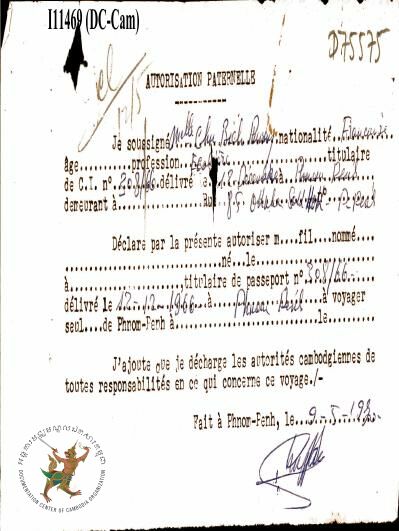 I11469 (DC-Cam)
D75575
12/5
AUTORISATION PATERNELLE
Je soussigné Melle Bich nationalité Française
âge..........profession..........titulaire
de C.I. n° 308/66 délivré le 12 Décembre à Phnom Penh
demeurant à..........Rue
Déclare par la présente autoriser m....fil....nommé....
....................né....le....................
à....................titulaire de passeport n° 308/66
délivré le 12-12-1966 à Phnom Penh à voyager
seul....de Phnom-Penh à....................le..........
J'ajoute que je décharge les autorités cambodgiennes de
toutes responsabilités en ce qui concerne ce voyage./-
Fait à Phnom-Penh, le 9-5-19
មជ្ឈមណ្ឌលឯកសារកម្ពុជា
DOCUMENTATION CENTER OF CAMBODIA ORGANIZATION